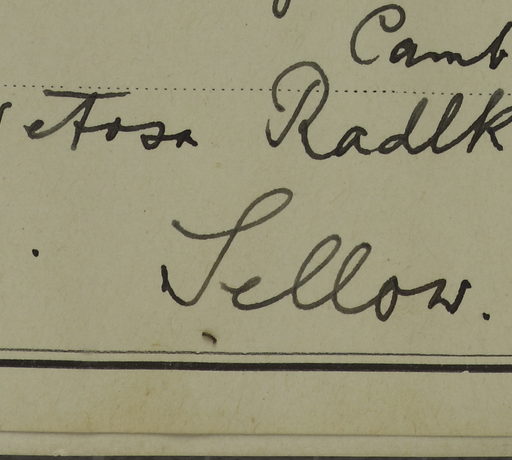 Camb
etosa Radlk
Sellow.